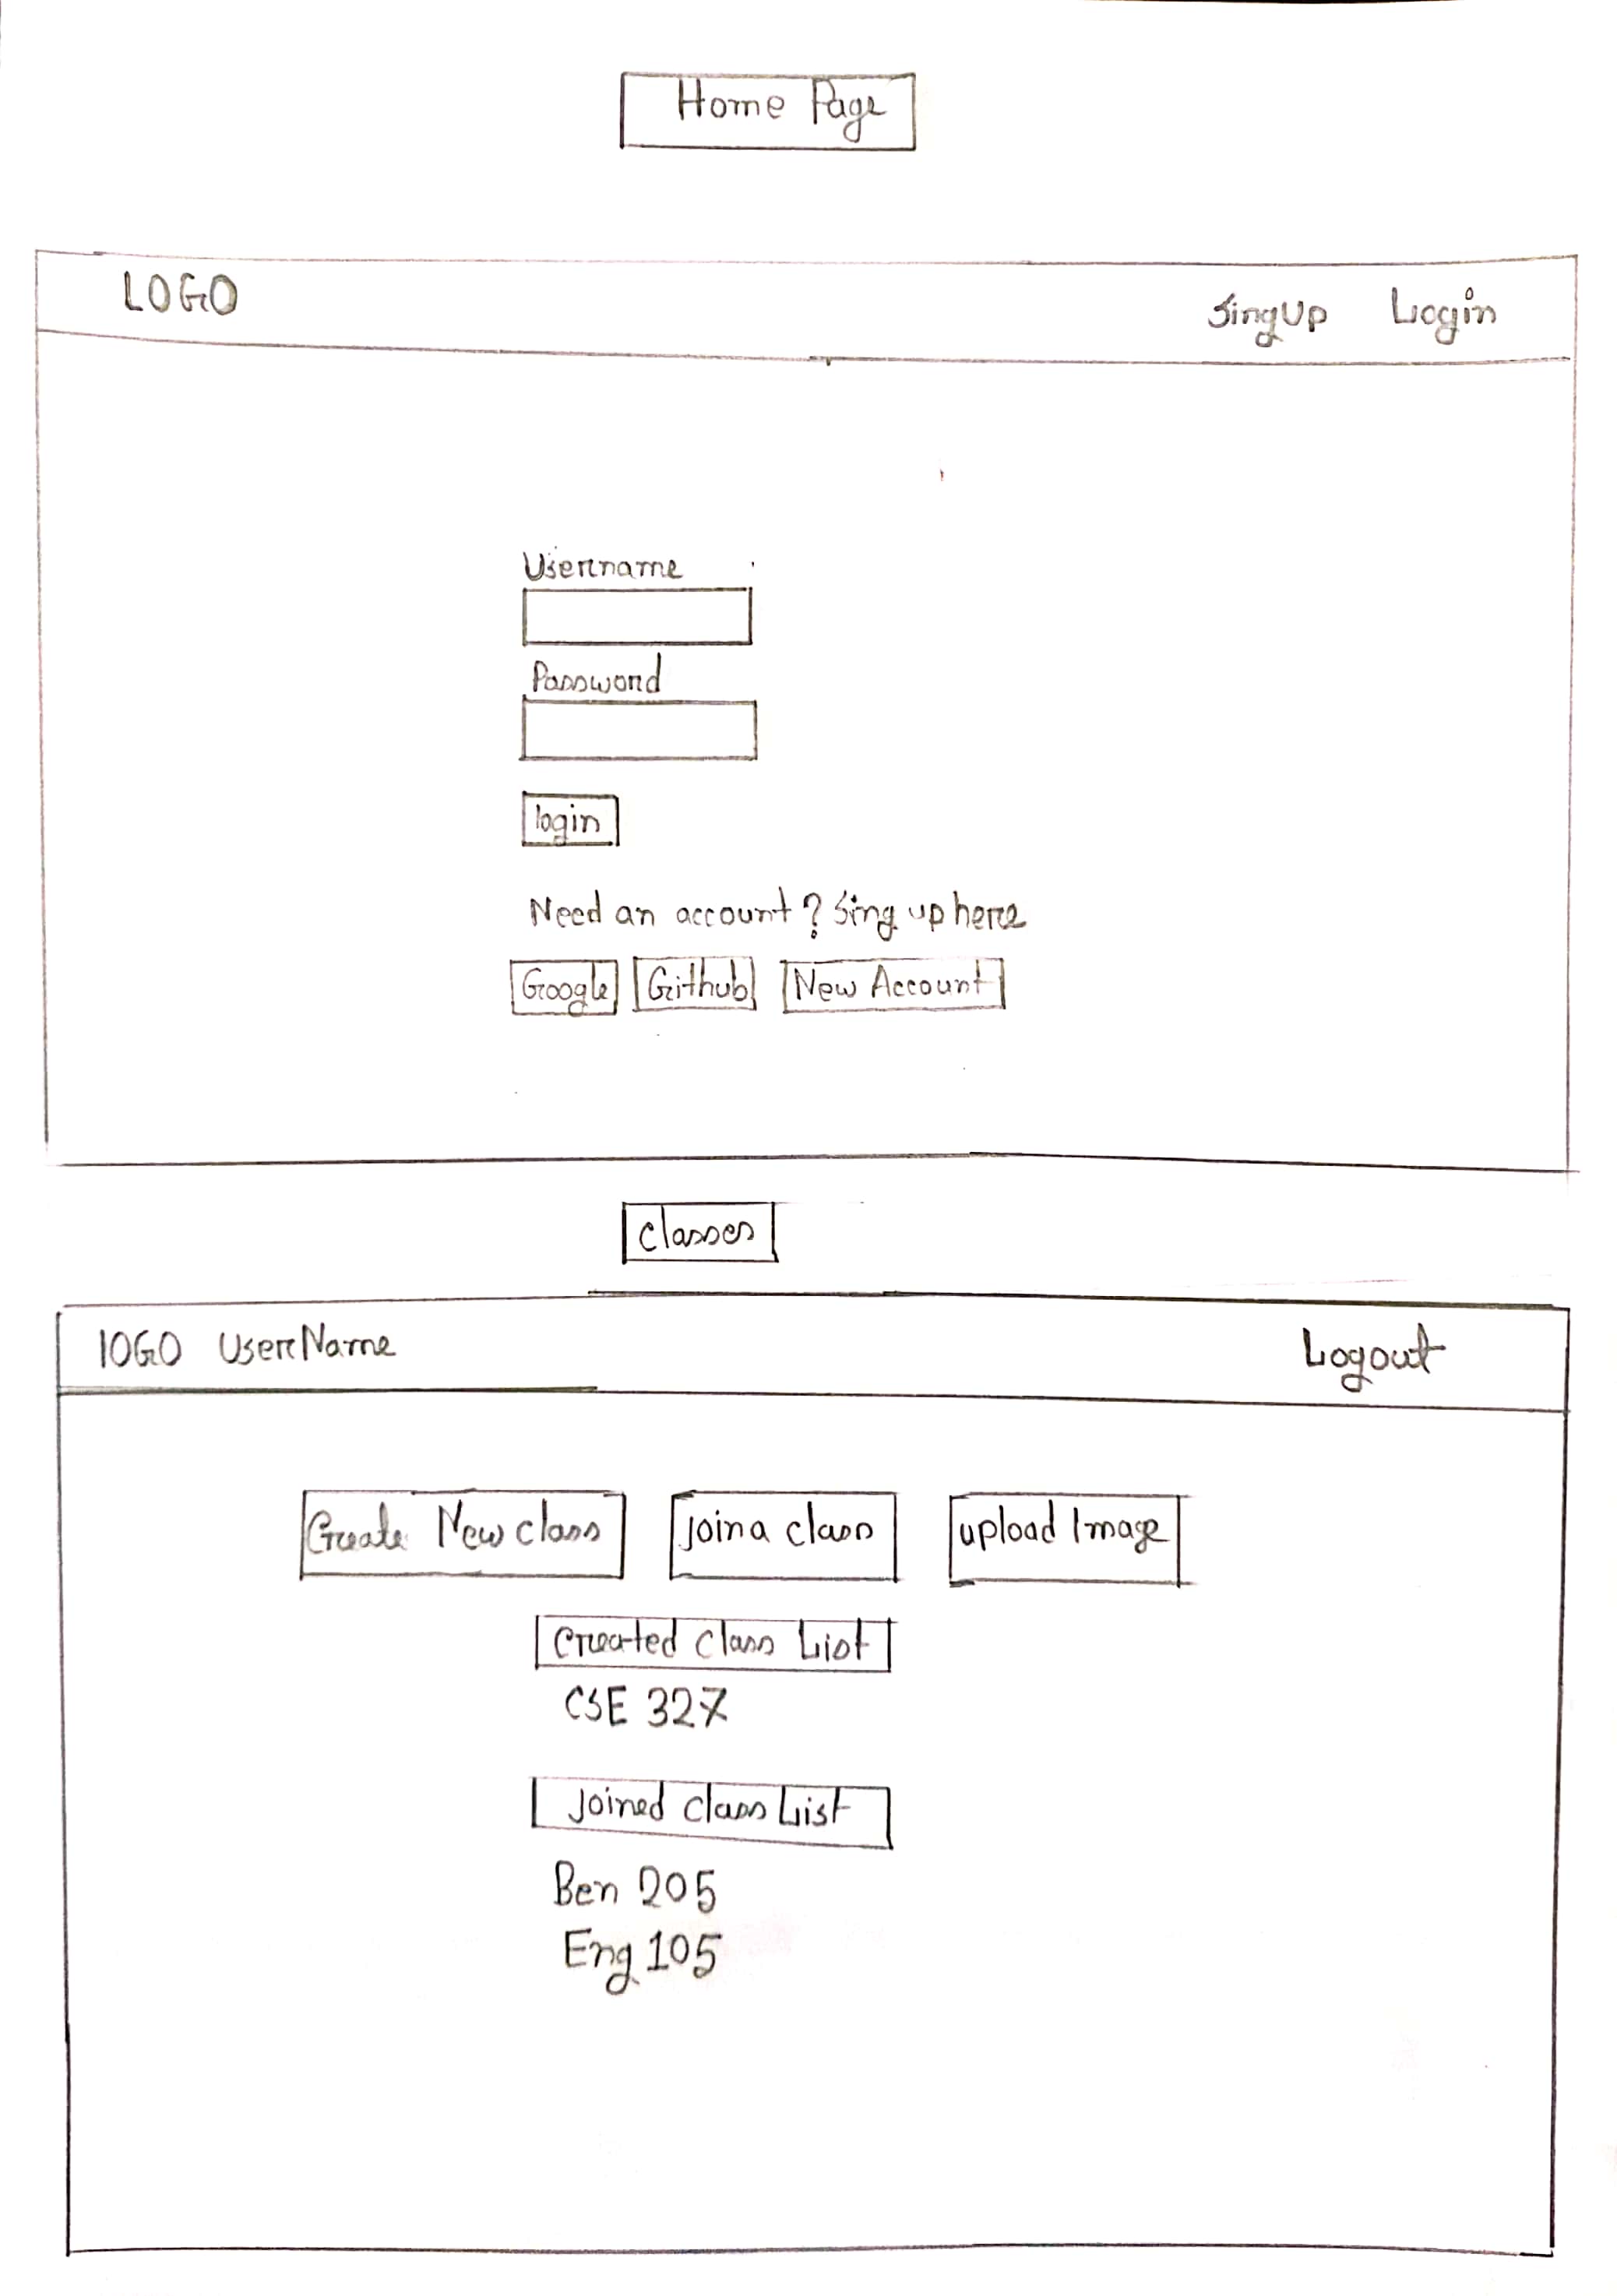 Home Page
LOGO SingUp Login
Username
Password
login
Need an account? Sing up here
Google Github New Account
Classes
lOGO UserName Logout
Create New class Join a class upload Image
Created Class List
CSE 327
Joined Class List
Ben 205
Eng 105